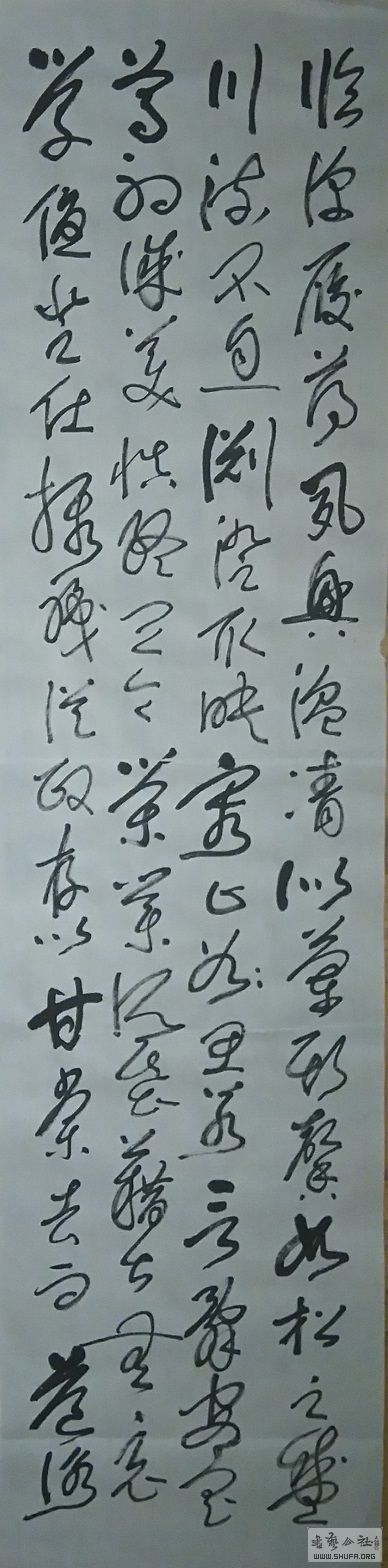 临深履薄夙兴温凊似兰斯馨如松之盛
川流不息渊澄取映容止若思言辞安定
笃初诚美慎终宜令荣业所基藉甚无竟
学优登仕摄职从政存以甘棠去而益咏
书艺公社
WWW.SHUFA.ORG